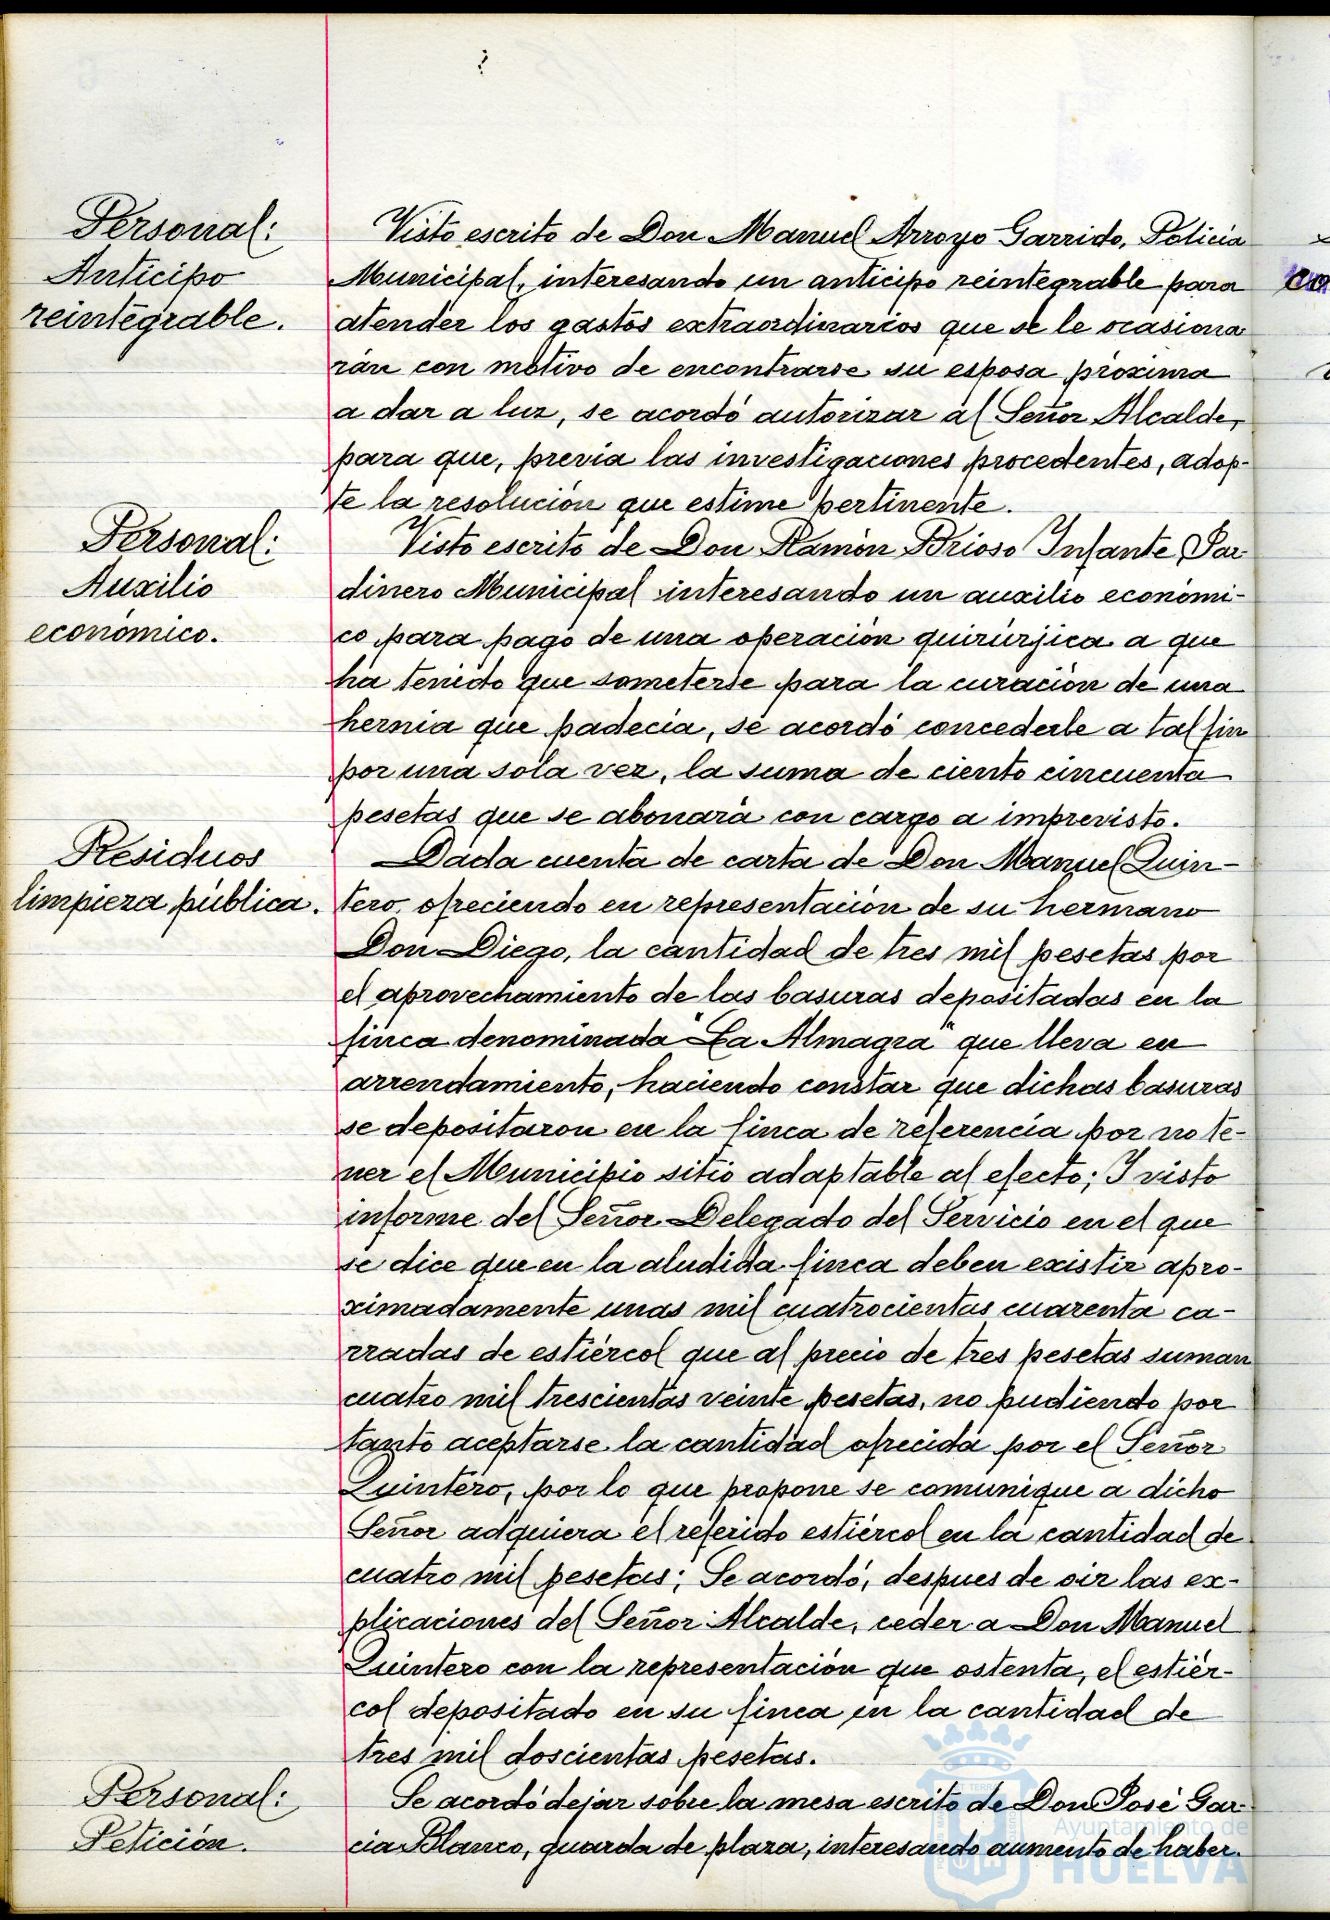 Personal:
Anticipo
reintegrable.
Visto escrito de Don Manuel Arroyo Garrido, Policía
Municipal, interesando un anticipo reintegrable para
atender los gastos extraordinarios que se le ocasiona
rán con motivo de encontrarse su esposa próxima
a dar a luz, se acordó autorizar al Señor Alcalde,
para que, previa las investigaciones procedentes, adop-
te la resolución que estime pertinente.
Personal:
Auxilio
económico.
Visto escrito de Don Ramón Brioso Infante Jar
dinero Municipal interesando un auxilio económi-
co para pago de una operación quirúrjica a que
ha tenido que someterse para la curación de una
hernia que padecía, se acordó concederle a tal fin
por una sola vez, la suma de ciento cincuenta
pesetas que se abonará con cargo a imprevisto.
Residuos
limpieza pública.
Dada cuenta de carta de Don Manuel Quin-
tero, ofreciendo en representación de su hermano
Don Diego, la cantidad de tres mil pesetas por
el aprovechamiento de las basuras depositadas en la
finca denominada "La Almagra" que lleva en
arrendamiento, haciendo constar que dichas basuras
se depositaron en la finca de referencia por no te-
ner el Municipio sitio adaptable al efecto; Y visto
informe del Señor Delegado del Servicio en el que
se dice que en la aludida finca deben existir apro-
ximadamente unas mil cuatrocientas cuarenta ca-
rradas de estiércol que al precio de tres pesetas suman
cuatro mil trescientas veinte pesetas, no pudiendo por
tanto aceptarse la cantidad ofrecida por el Señor
Quintero, por lo que propone se comunique a dicho
Señor adquiera el referido estiércol en la cantidad de
cuatro mil pesetas; Se acordó, despues de oir las ex-
plicaciones del Señor Alcalde, ceder a Don Manuel
Quintero con la representación que ostenta, el estiér-
col depositado en su finca en la cantidad de
tres mil doscientas pesetas.
Personal:
Petición.
Se acordó dejar sobre la mesa escrito de Don José Gar-
cia Blanco, guarda de plaza, interesando aumento de haber.
Ayuntamiento de
HUELVA